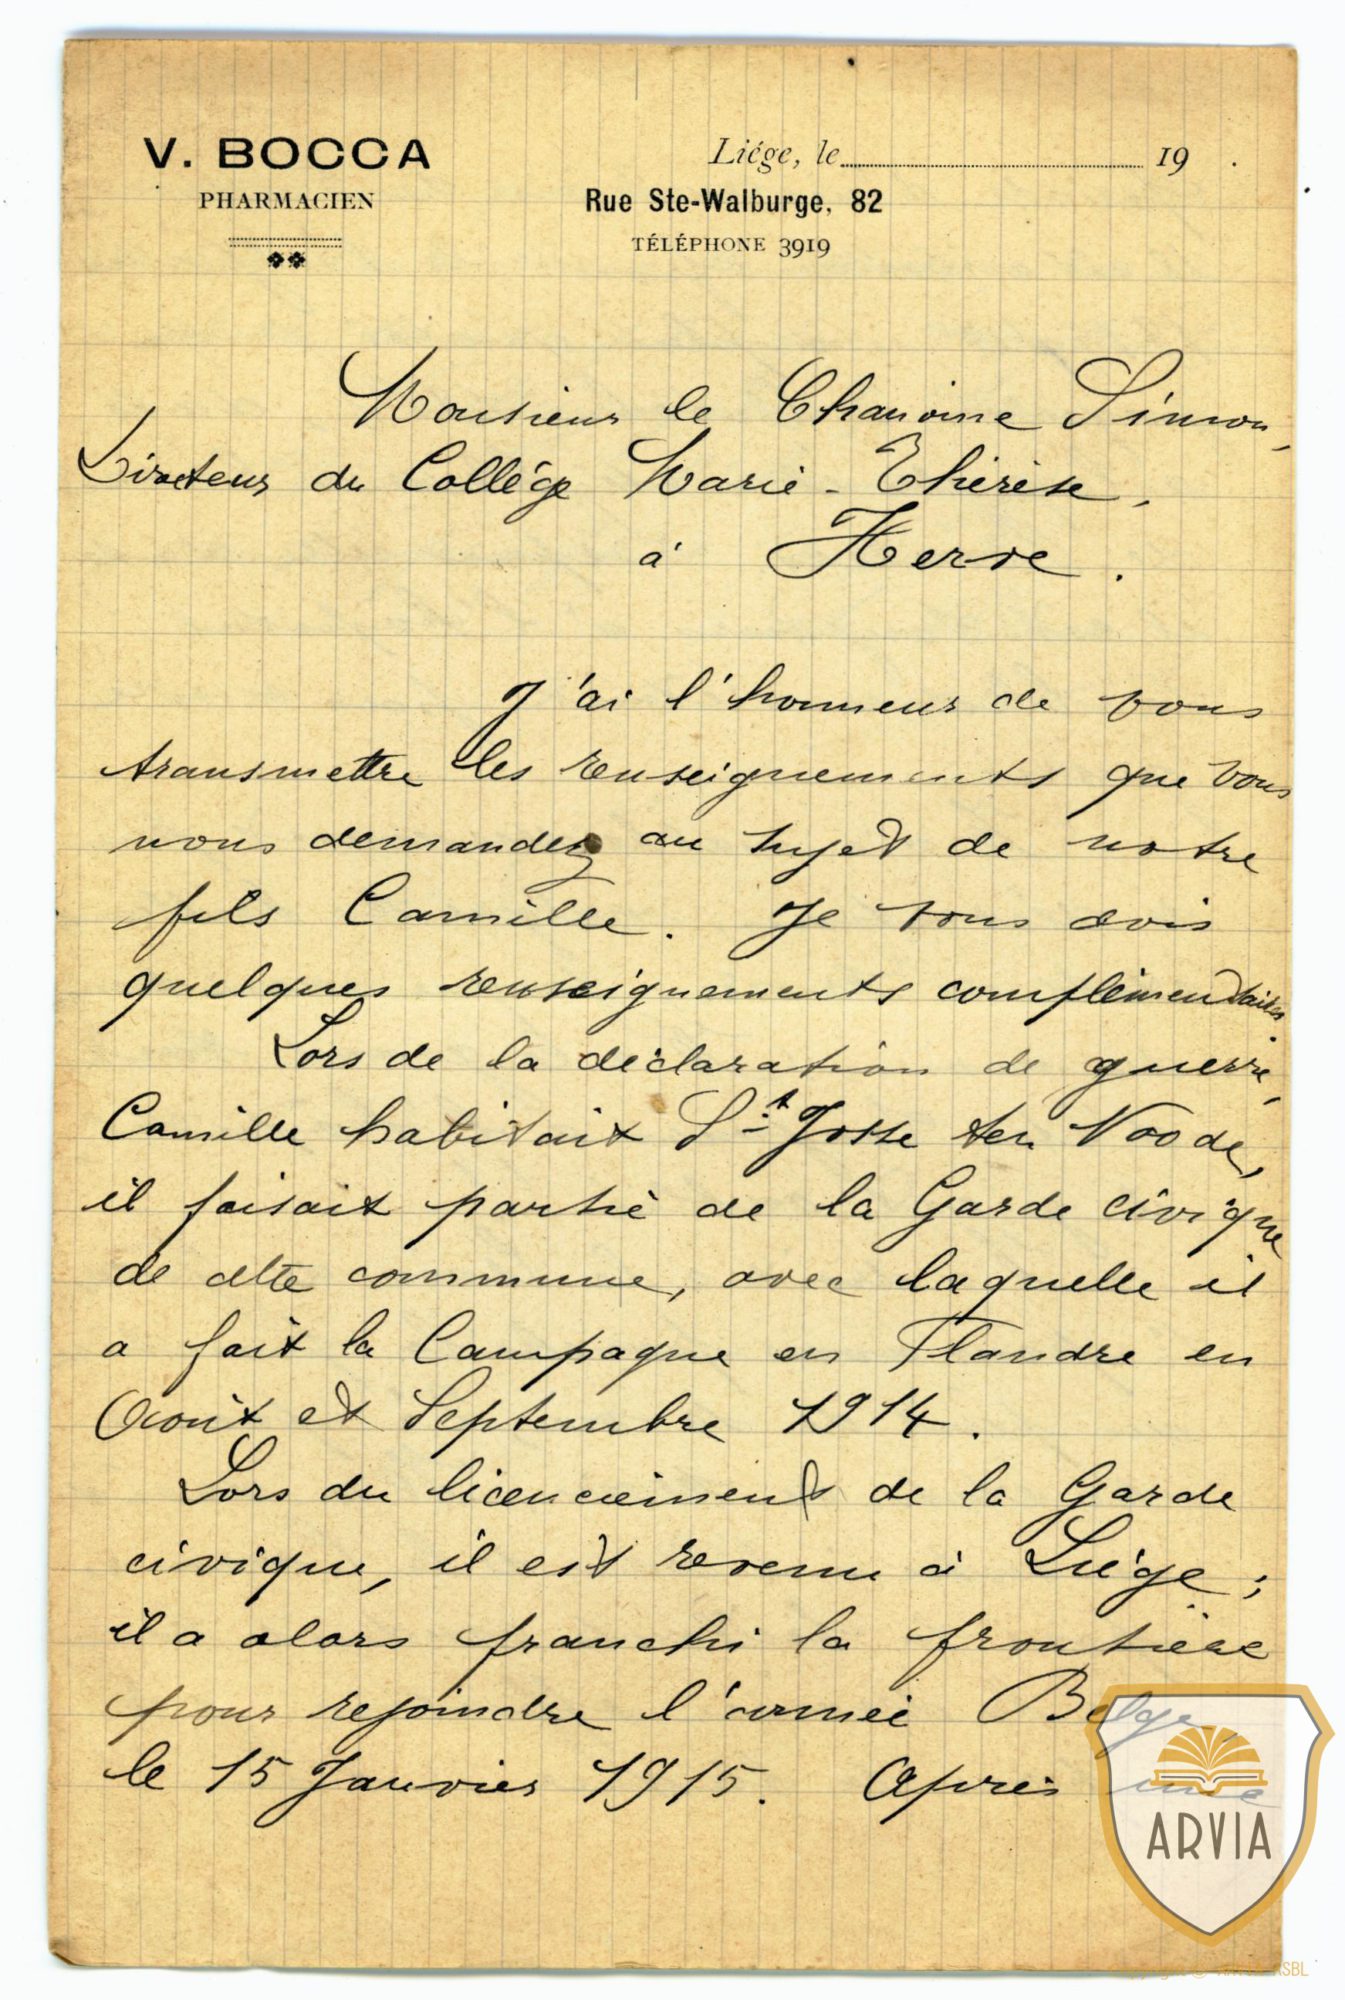 V. BOCCA
PHARMACIEN
Liége, le 19 .
Rue Ste-Walburge, 82
TÉLÉPHONE 3919
Monsieur le Chanoine Simon,
Directeur du Collége Marie-Thérèse,
à Herve.
J'ai l'honneur de vous
transmettre les renseignements que vous
nous demandez au sujet de notre
fils Camille. Je vous dois
quelques renseignements complémentaires.
Lors de la déclaration de guerre,
Camille habitait St Josse ten Noode,
il faisait partie de la Garde civique
de cette commune, avec laquelle il
a fait la Campagne en Flandre en
Août et Septembre 1914.
Lors du licenciement de la Garde
civique, il est revenu à Liège;
il a alors franchi la frontière
pour rejoindre l'armée Belge,
le 15 Janvier 1915. Après une
ARVIA
Copyright © ARVIA ASBL